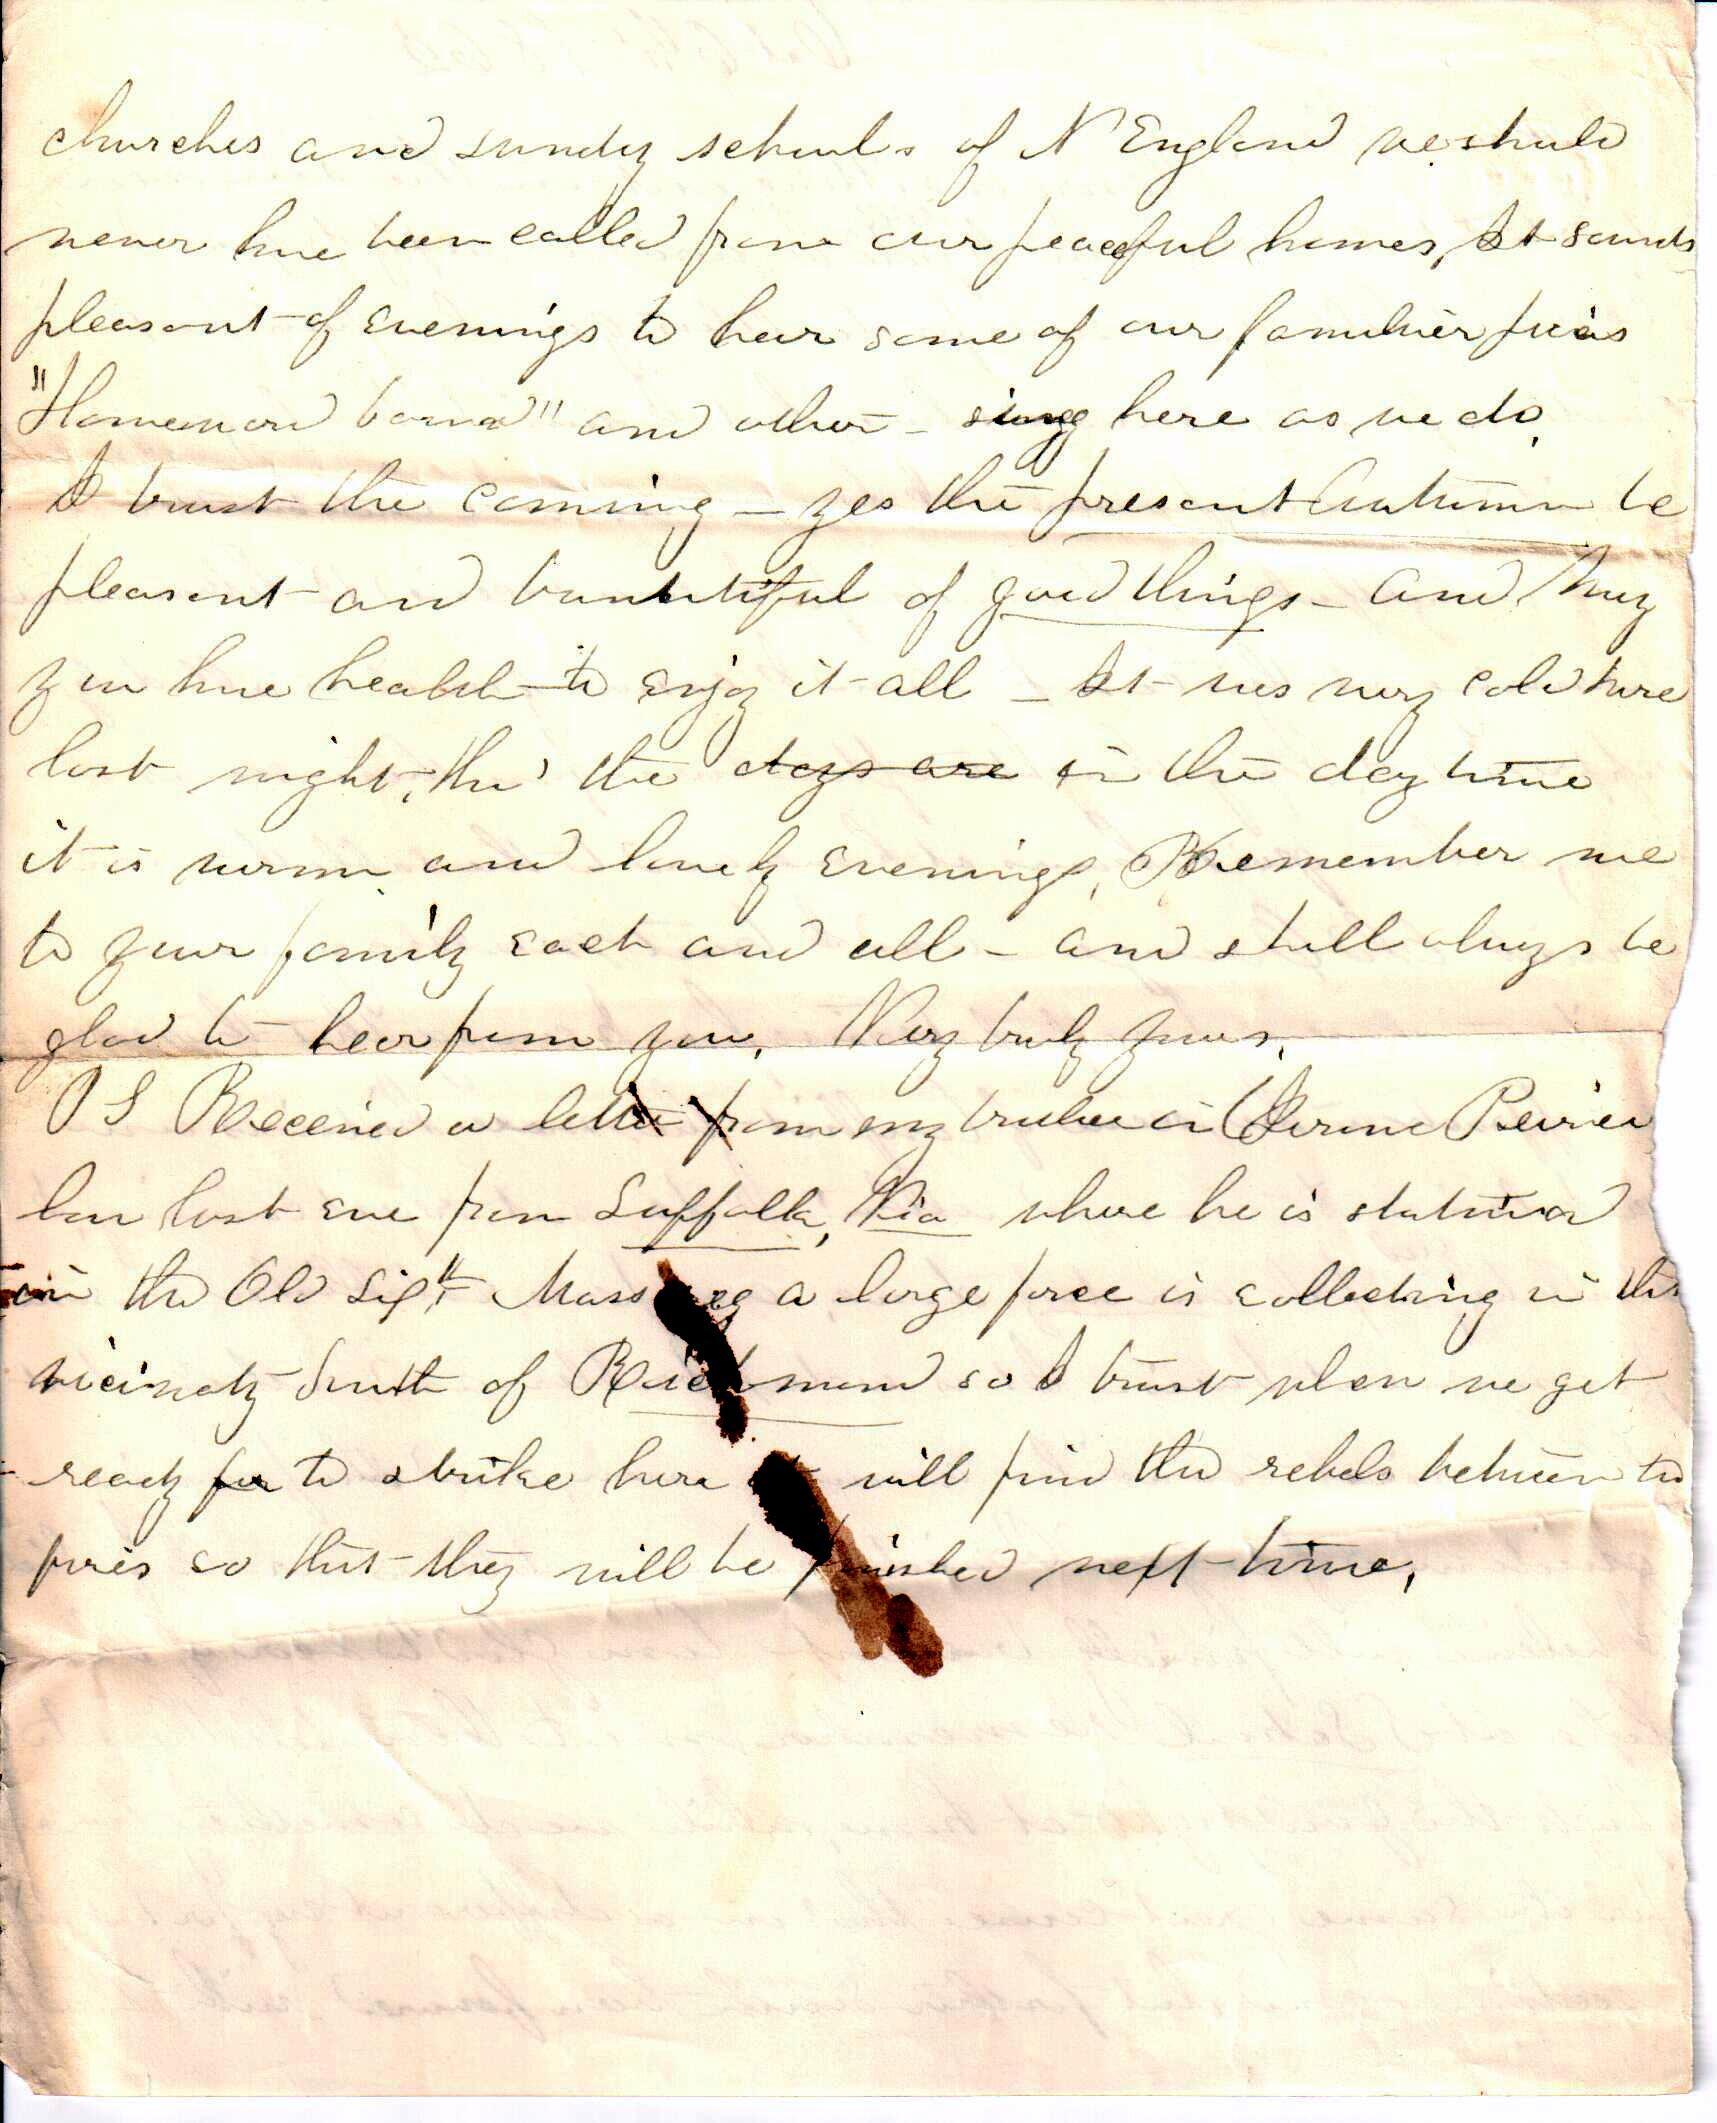 churches and sunday schools of N England we should
never have been called from our peaceful homes, It sounds
pleasant of evenings to hear some of our familier
"Homeward bound" and others - sung here as we do,
I trust the coming - yes the present Autumn be
pleasant and bountitiful of good things - and May
you have health to enjoy it all - It was very cold here
last night, tho' the days are in the day time
it is warm and lovely evenings, Remember me
to your family each and all - and shall always be
glad to hear from you, Very truly yours,
P S Received a letter from my brother in
law last eve from Suffolk, Via where he is stationed
in the Old Sixth Mass Reg a large force is collecting in the
vicinety South of Richmond so I trust when we get
ready for to strike here will find the rebels between two
fires so that they will be finished next time,